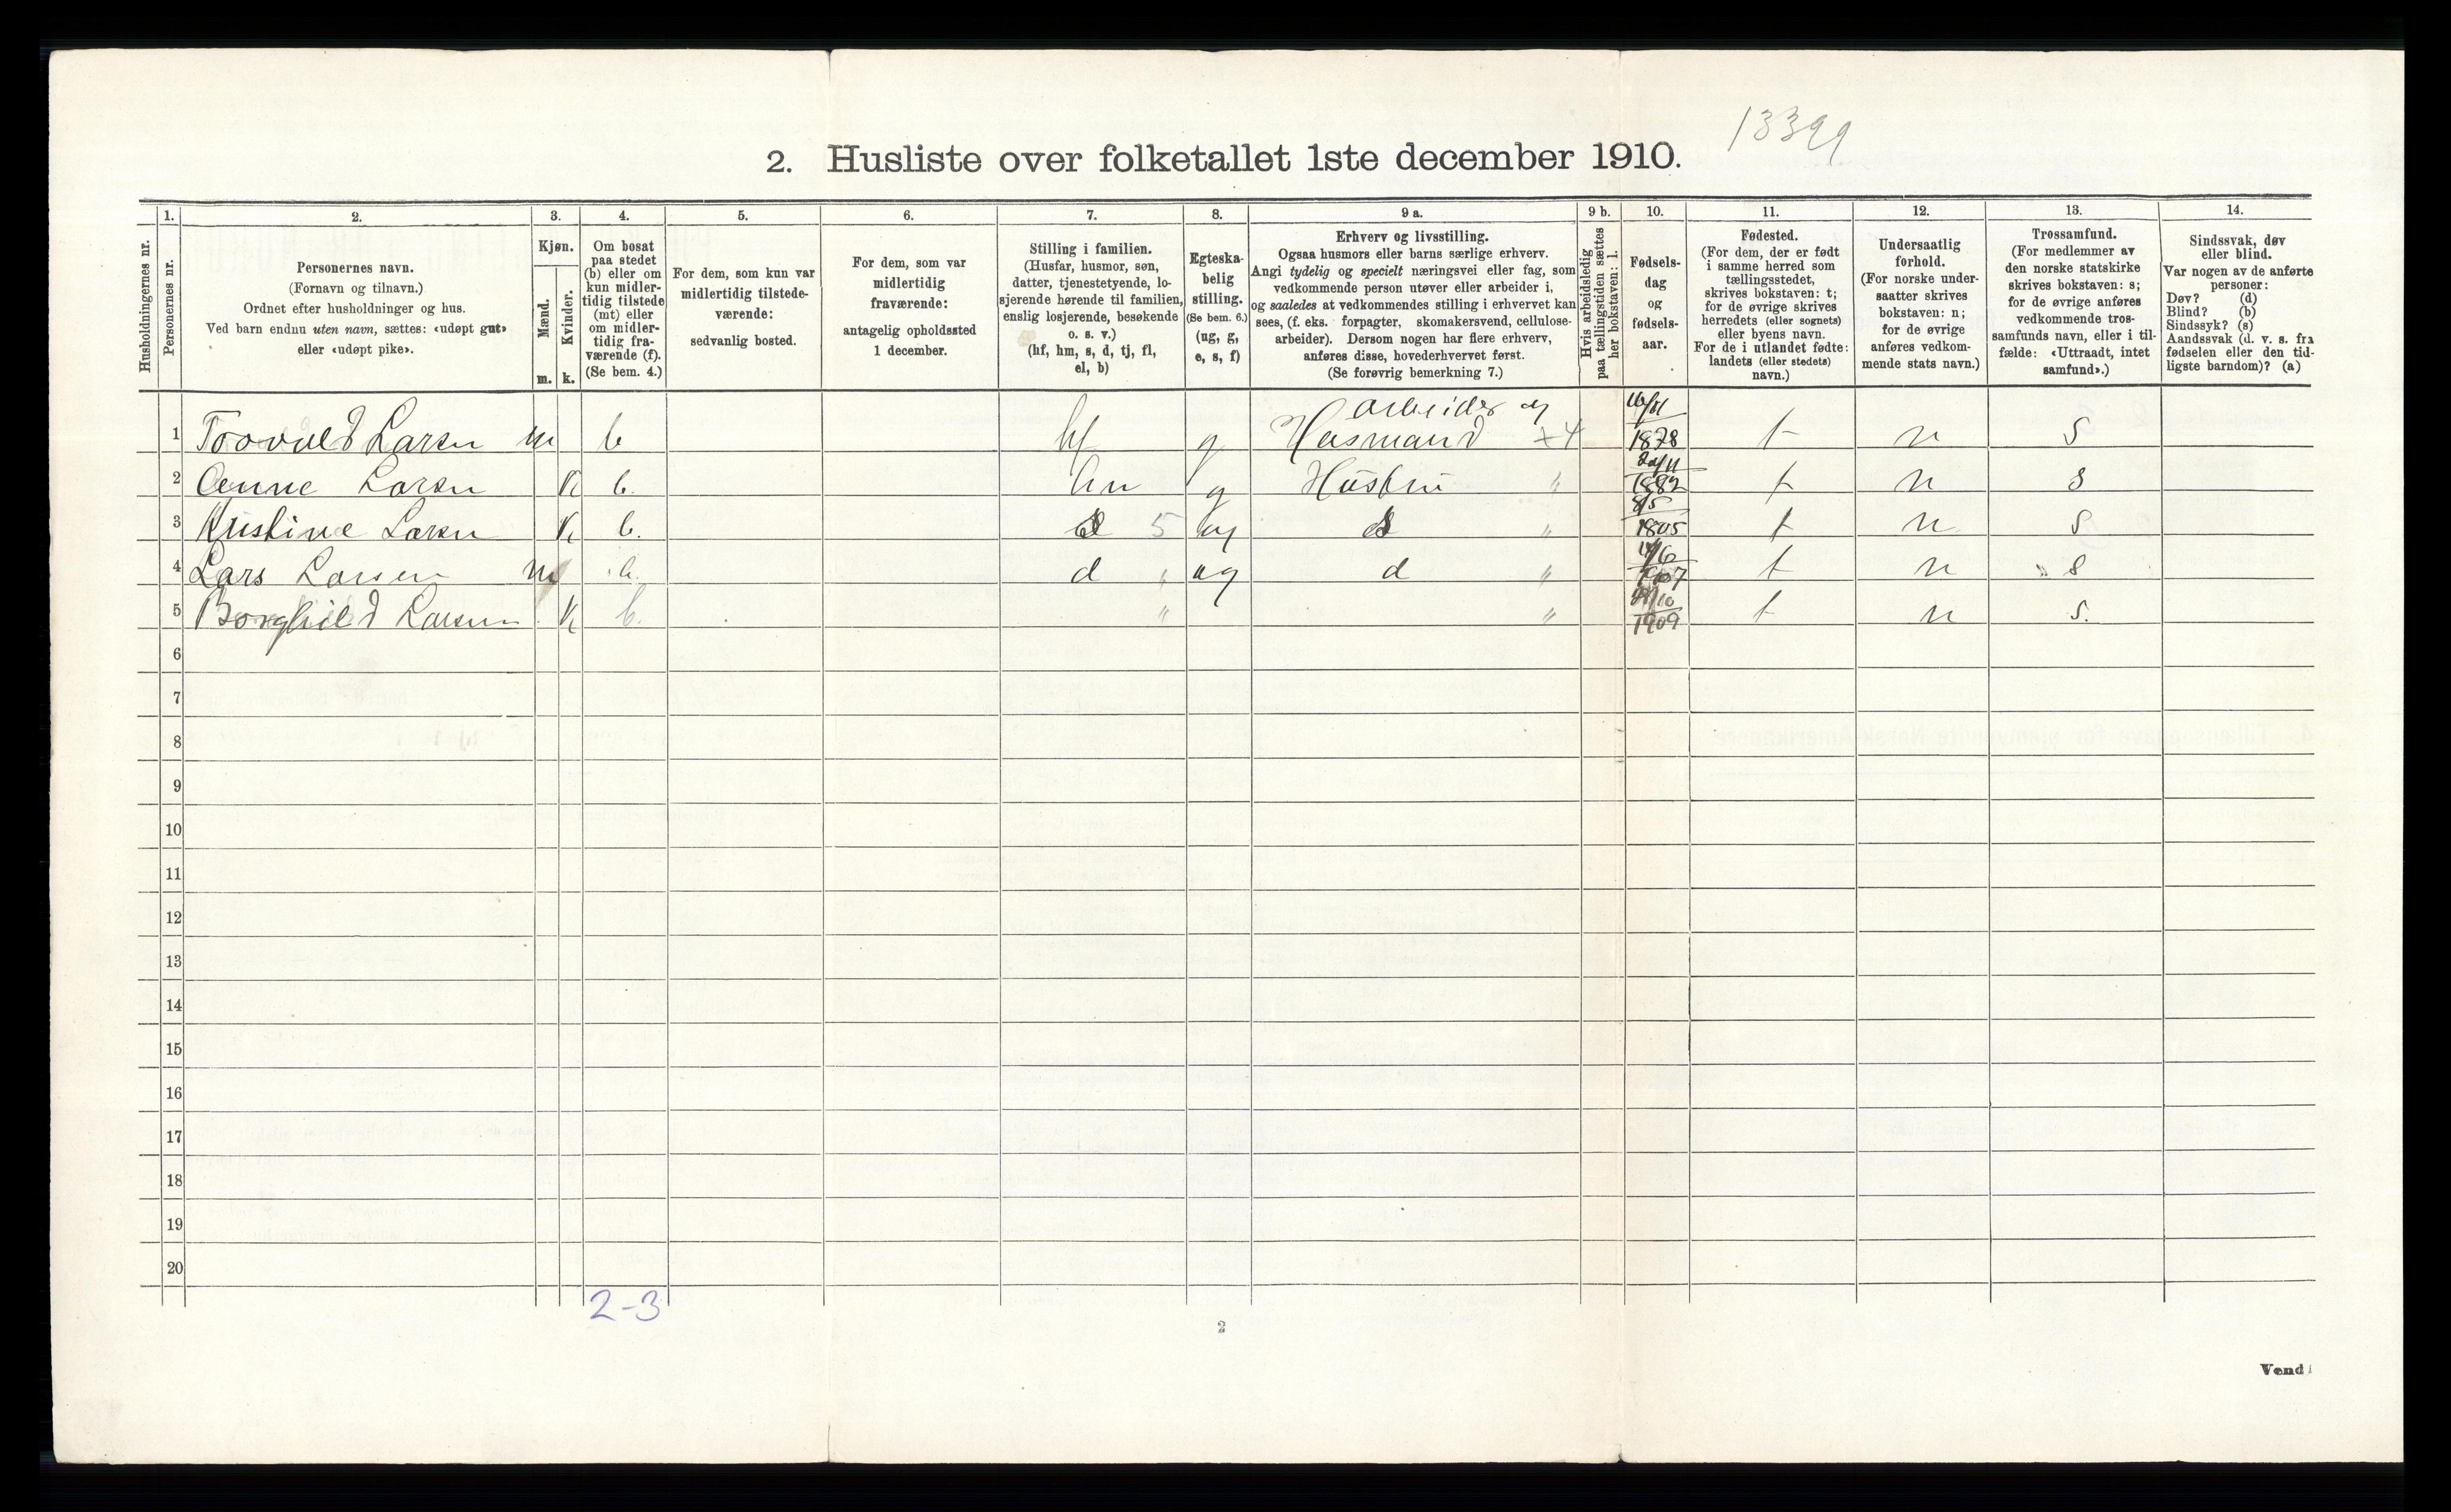 13399
2. Husliste over folketallet 1ste december 1910.
Husholdningernes nr.
1.
Personernes nr.
2.
Personernes navn.
(Fornavn og tilnavn.)
Ordnet efter husholdninger og hus.
Ved barn endnu uten navn, sættes: «udøpt gut»
eller «udøpt pike».
3.
Kjøn.
Mænd.
Kvinder.
m. k.
4.
Om bosat
paa stedet
(b) eller om
kun midler-
tidig tilstede
(mt) eller
om midler-
tidig fra-
værende (f).
(Se bem. 4.)
5.
For dem, som kun var
midlertidig tilstede-
værende:
sedvanlig bosted.
6.
For dem, som var
midlertidig
fraværende:
antagelig opholdssted
1 december.
7.
Stilling i familien.
(Husfar, husmor, søn,
datter, tjenestetyende, lo-
sjerende hørende til familien,
enslig losjerende, besøkende
o. s. v.)
(hf, hm, s, d, tj, fl,
el, b)
8.
Egteska-
belig
stilling.
(Se bem. 6.)
(ug, g,
e, s, f)
9 a.
Erhverv og livsstilling.
Ogsaa husmors eller barns særlige erhverv.
Angi tydelig og specielt næringsvei eller fag, som
vedkommende person utøver eller arbeider i,
og saaledes at vedkommendes stilling i erhvervet kan
sees, (f. eks. forpagter, skomakersvend, cellulose-
arbeider). Dersom nogen har flere erhverv,
anføres disse, hovederhvervet først.
(Se forøvrig bemerkning 7.)
9 b.
Hvis arbeidsledig
paa tællingstiden sættes
her bokstaven: l.
10.
Fødsels-
dag
og
fødsels-
aar.
11.
Fødested.
(For dem, der er født
i samme herred som
tællingsstedet,
skrives bokstaven: t;
for de øvrige skrives
herredets (eller sognets)
eller byens navn.
For de i utlandet fødte:
landets (eller stedets)
navn.)
12.
Undersaatlig
forhold.
(For norske under-
saatter skrives
bokstaven: n;
for de øvrige
anføres vedkom-
mende stats navn.)
13.
Trossamfund.
(For medlemmer av
den norske statskirke
skrives bokstaven: s;
for de øvrige anføres
vedkommende tros-
samfunds navn, eller i til-
fælde: «Uttraadt, intet
samfund».)
14.
Sindssvak, døv
eller blind.
Var nogen av de anførte
personer:
Døv? (d)
Blind? (b)
Sindssyk? (s)
Aandssvak (d. v. s. fra
fødselen eller den tid-
ligste barndom)? (a)
arbeider og
1 Torvald Larsen m b hf g Husmand +4 1878 t n S
2 Anne Larsen K b. hm g Hustru " 1882 t n S
3 Kristine Larsen K b. d 5 ug " 8/5 1905 t n S
4 Lars Larsen m d " ug d " 1907 t n S
5 Borghild Larsen K b. " " 1909 t n S.
6
7
8
9
10
11
12
13
14
15
16
17
18
19
20
2-3
2
Vend